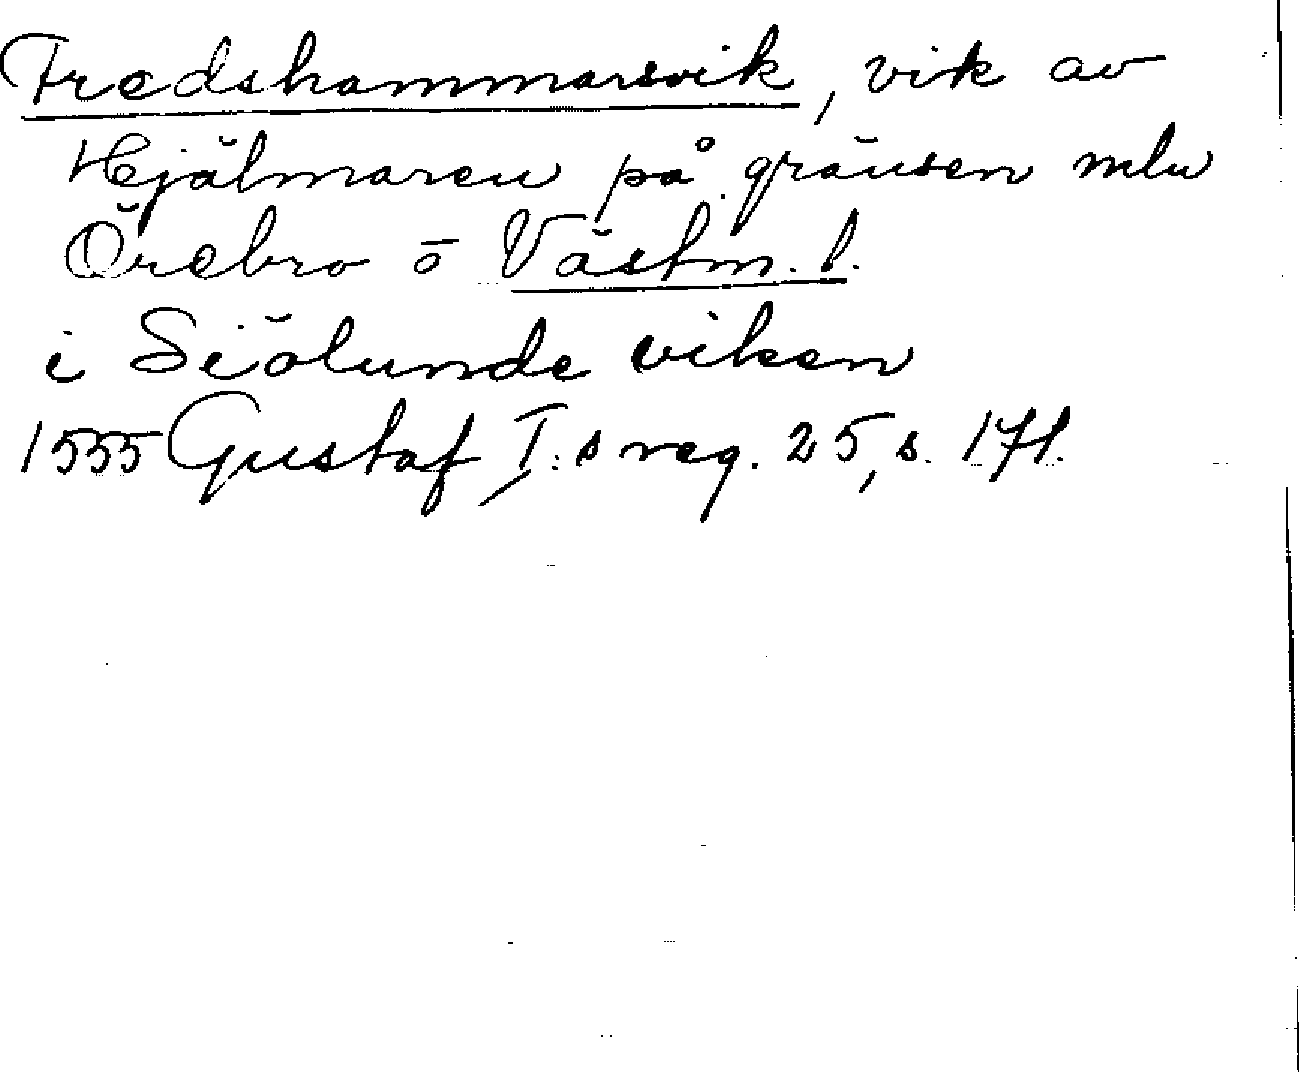 Fredshammarsvik, vik av
Hjälmaren på gränsen mln
Örebro o Västm. l.
i Siölunde viken
1555 Gustaf I:s reg. 25, s. 171.